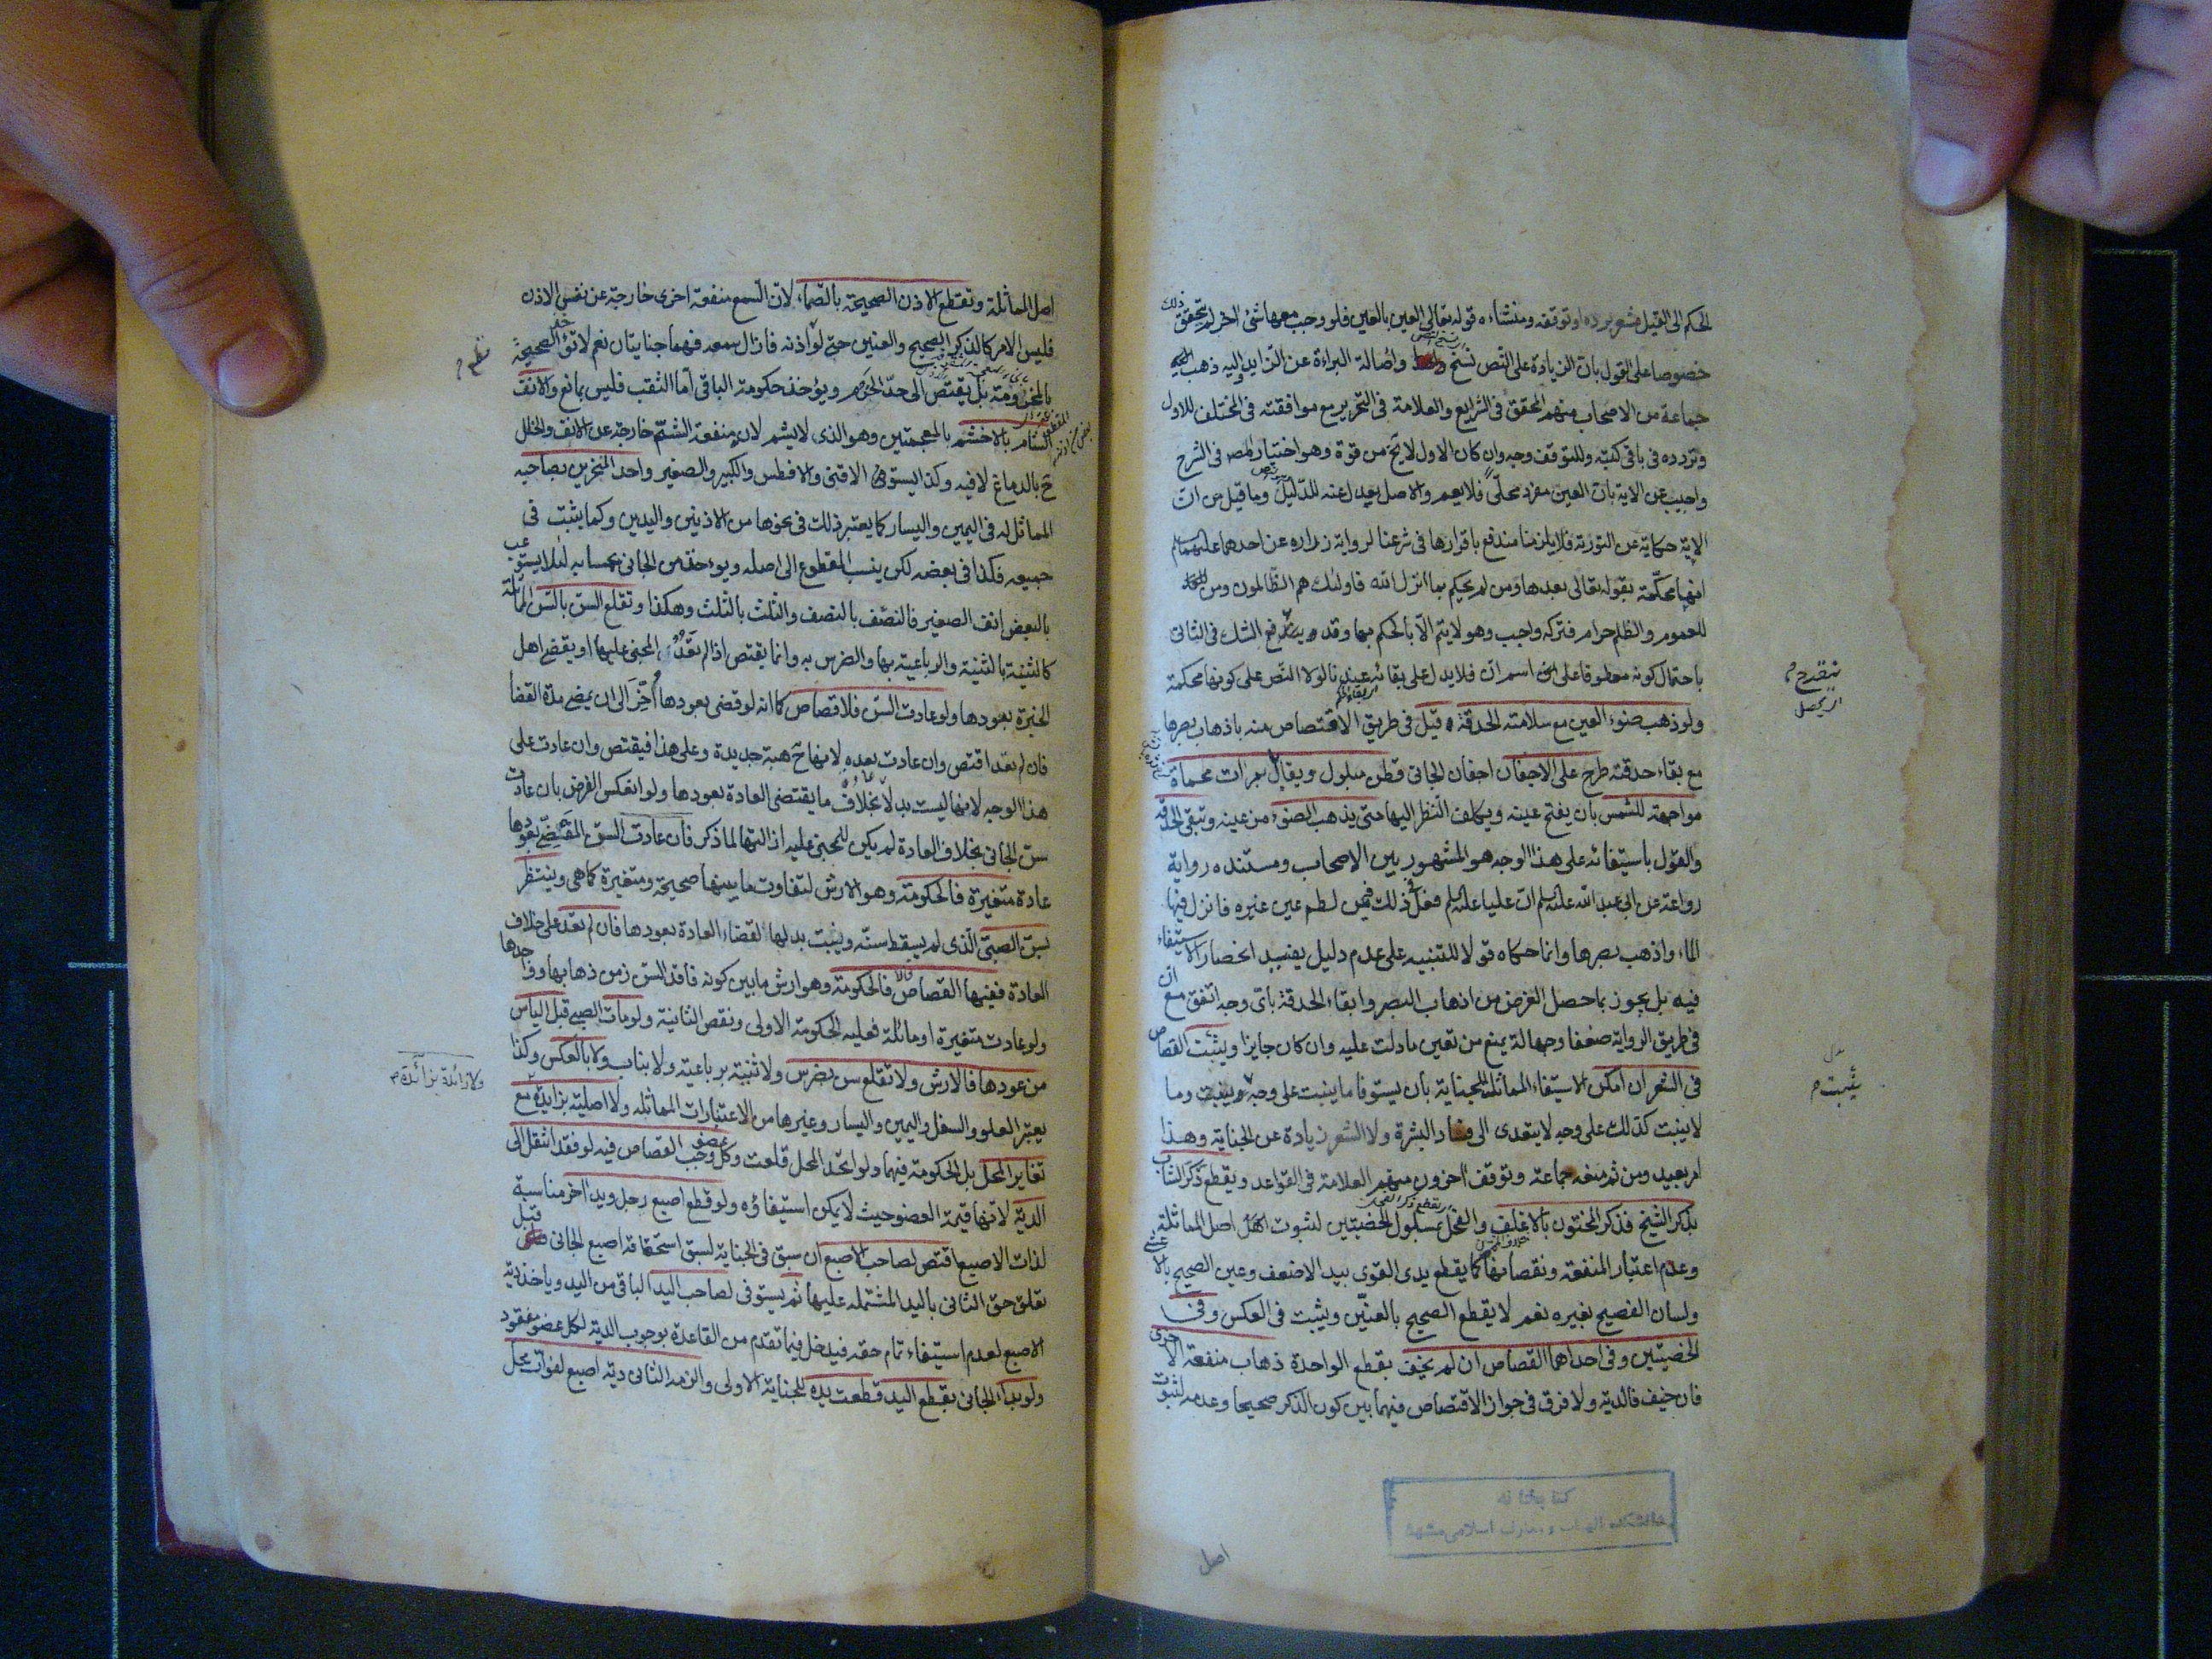 الحكم الى القيل مشعر برده او توقفه ومنشاءه قوله تعالى العين بالعين فلو وجب معها شئ اخر لم يتحقق ذلك
خصوصا على القول بان الزيادة على النص نسخ واصالة البراءة عن الزايد واليه ذهب
جماعة من الاصحاب منهم المحقق فى الشرايع والعلامة فى التحرير مع موافقته فى المختلف للاول
وتردده فى باقى كتبه وللتوقف وجه وان كان الاول لا يخ من قوة وهو اختيار المص فى الشرح
واجيب عن الاية بان العين مفرد محلى فلا يعم والاصل يعدل عنه للدليل وما قيل من ان
الاية حكاية عن التورية فلا يلزمنا مندفع باقرارها فى شرعنا لرواية زرارة عن احدهما عليهما سلم
انها محكمة بقوله تعالى بعدها ومن لم يحكم بما انزل الله فاولئك هم الظالمون ومن
للعموم والظلم حرام فتركه واجب وهو لا يتم الا بالحكم بها وقد يرتفع الشك فى الثانى
باحتمال كونه معطوفا على اسم ان فلا يدل على بقائه عندنا لولا النص على كونها محكمة
ولو ذهب ضوء العين مع سلامته الحدقة قيل فى طريق الاقتصاص منه باذهاب بصرها
مع بقاء حدقته طرح على الاجفان اجفان الجانى قطن مبلول ويقابل بمرات محماة
مواجهة للشمس بان يفتح عينه ويكلف النظر اليها حتى يذهب الضوء من عينه وتبقى الحدقة
والقول باستيفائه على هذا الوجه هو المشهور بين الاصحاب ومستنده رواية
رواعة عن ابى عبد الله عليه سلم ان عليا عليه سلم فعل ذلك فيمن لطم عين غيره فانزل فيها
الماء واذهب بصرها وانما حكاه قولا للتنبيه على عدم دليل يفيد انحصار الاستيفاء
فيه بل يجوز بما حصل الغرض من اذهاب البصر وابقاء الحدقة باى وجه اتفق مع ان
فى طريق الرواية ضعفا وجهالة يمنع من تعين ما دلت عليه وان كان جايزا ويثبت القصاص
فى الشعر ان امكن الاستيفاء المماثل للجناية بان يستوفا ما ينبت على وجه ينبت وما
لا ينبت كذلك على وجه لا يتعدى الى فساد البشرة ولا الشعر زيادة عن الجناية وهذا
امر بعيد ومن ثم منعه جماعة وتوقف اخرون منهم العلامة فى القواعد ويقطع ذكر الشاب
بذكر الشيخ فذكر المختون بالاغلف والفحل بمسلول الخصيتين لثبوت اصل المماثلة
وعدم اعتبار المنفعة ونقصانها كما يقطع يدى القوى بيد الاضعف وعين الصحيح بالاعشى
ولسان الفصيح بغيره نعم لا يقطع الصحيح بالعنين ويثبت فى العكس وفى
الخصيتين وفى احداهما القصاص ان لم يخف بقطع الواحدة ذهاب منفعة الاخرى
فان خيف فالدية ولا فرق فى جواز الاقتصاص فيهما بين كون الذكر صحيحا وعدمه لثبوت
يثبت م
كتابخانه
دانشكده الهيات و معارف اسلامى مشهد
اصل
اصل المماثلة وتقطع الاذن الصحيحة بالصماء لان السمع منفعة اخرى خارجة عن نفس الاذن
فليس الامر كالذكر الصحيح والعنين حتى لو قطع اذنه فازال سمعه فهما جنايتان نعم لا تؤخذ الصحيحة
بالمخرومة بل يقتص الى حد الخرم ويؤخذ حكومة الباقى اما الثقب فليس بمانع والانف
الشام بالاخشم بالمعجمتين وهو الذى لا يشم لان منفعة الشم خارجة عن الانف والخلل
ح بالدماغ لا فيه وكذا يستوى الاقنى والافطس والكبير والصغير واحد المنخرين بصاحبه
المماثل له فى اليمين واليسار كما يعتبر ذلك فى نحوها من الاذنين واليدين وكما يثبت فى
جميعه فكذا فى بعضه لكن ينسب المقطوع الى اصله ويوءخذ من الجانى بحسابه لئلا يستوعب
بالبعض انف الصغير فالنصف بالنصف والثلث بالثلث وهكذا وتقلع السن بالسن المماثلة
كالثنية بالثنية والرباعية بها والضرس به وانما يقتص اذا لم تعد المجنى عليها او يقضى اهل
الخبرة بعودها ولو عادت السن فلا قصاص كما انه لو قضى بعودها اخر الى ان يمضى مدة القضا
فان لم تعد اقتص وان عادت بعده لانها ح هبة جديدة وعلى هذا فيقتص وان عادت على
هذا الوجه لانها ليست بدلا بخلاف ما يقتضى العادة بعودها ولو انعكس الفرض بان عادت
سن الجانى بخلاف العادة لم يكن للمجنى عليه ازالتها لما ذكر فان عادت السن المقضى بعودها
عادة متغيرة فالحكومة وهو الارش لتفاوت ما بينها صحيحة ومتغيرة كما هى وينتظر
بسن الصبى الذى لم يسقط سنه وينبت بدلها لقضاء العادة بعودها فان لم تعد على خلاف
العادة ففيها القصاص والا فالحكومة وهو ارش ما بين كونه فاقد السن زمن ذهابها وواجدها
ولو عادت متغيرة او مائلة فعليه الحكومة الاولى ونقص الثانية ولو مات الصبى قبل الياس
من عودها فالارش ولا تقلع سن بضرس ولا ثنية برباعية ولا بناب ولا بالعكس وكذا
يعتبر العلو والسفل واليمين واليسار وغيرها من الاعتبارات المماثله ولا اصلية بزايدة مع
ولا زائدة بزائدة م
تغاير المحل بل الحكومة فيهما ولو اتحد المحل قلعت وكل عضو وجب القصاص فيه لو فقد انتقل الى
الدية لانها قيمة العضو حيث لا يمكن استيفاؤه ولو قطع اصبع رجل ويد اخر مناسبة
لذات الاصبع اقتص لصاحب الاصبع ان سبق فى الجناية لسبق استحقاقه اصبع الجانى قبل
تعلق حق الثانى باليد المشتملة عليها ثم يستوفى لصاحب اليد الباقى من اليد وياخذ دية
الاصبع لعدم استيفاء تمام حقه فيدخل فيما تقدم من القاعدة بوجوب الدية لكل عضو مفقود
ولو بدا الجانى بقطع اليد قطعت يده للجناية الاولى والزمه الثانى دية اصبع لفوات محل